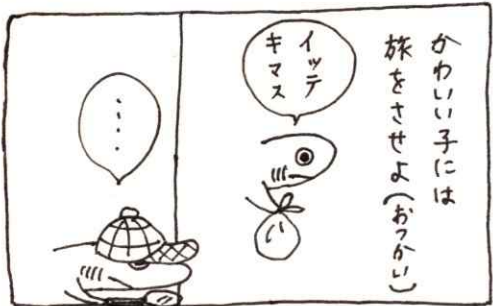 かわいい子には
旅をさせよ(おつかい)
イッテ
キマス
い
・・・・